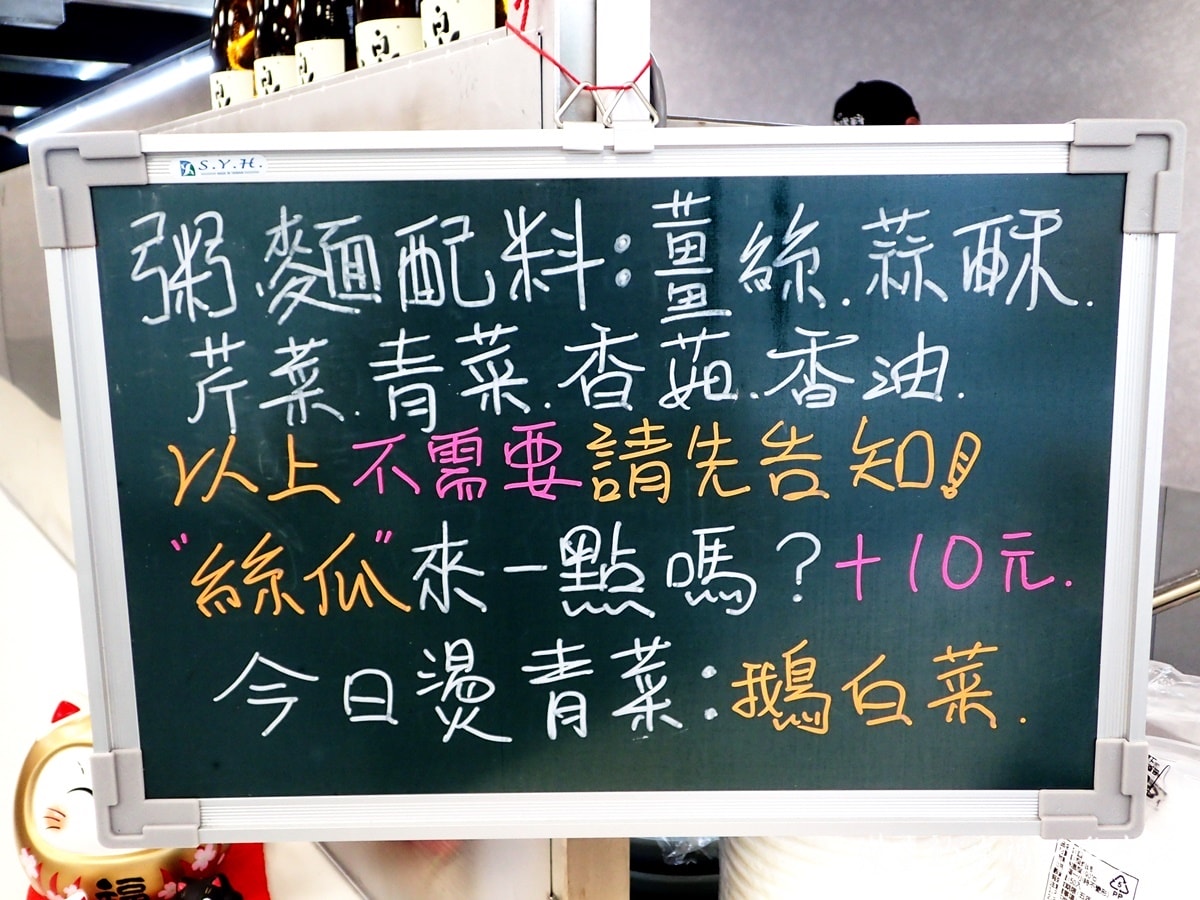 S.Y.H.
粥麵配料:薑絲.蒜酥.
芹菜.青菜.香菇.香油.
以上不需要請先告知!
"絲瓜"來一點嗎?+10元.
今日燙青菜:鵝白菜.
福
5
PP